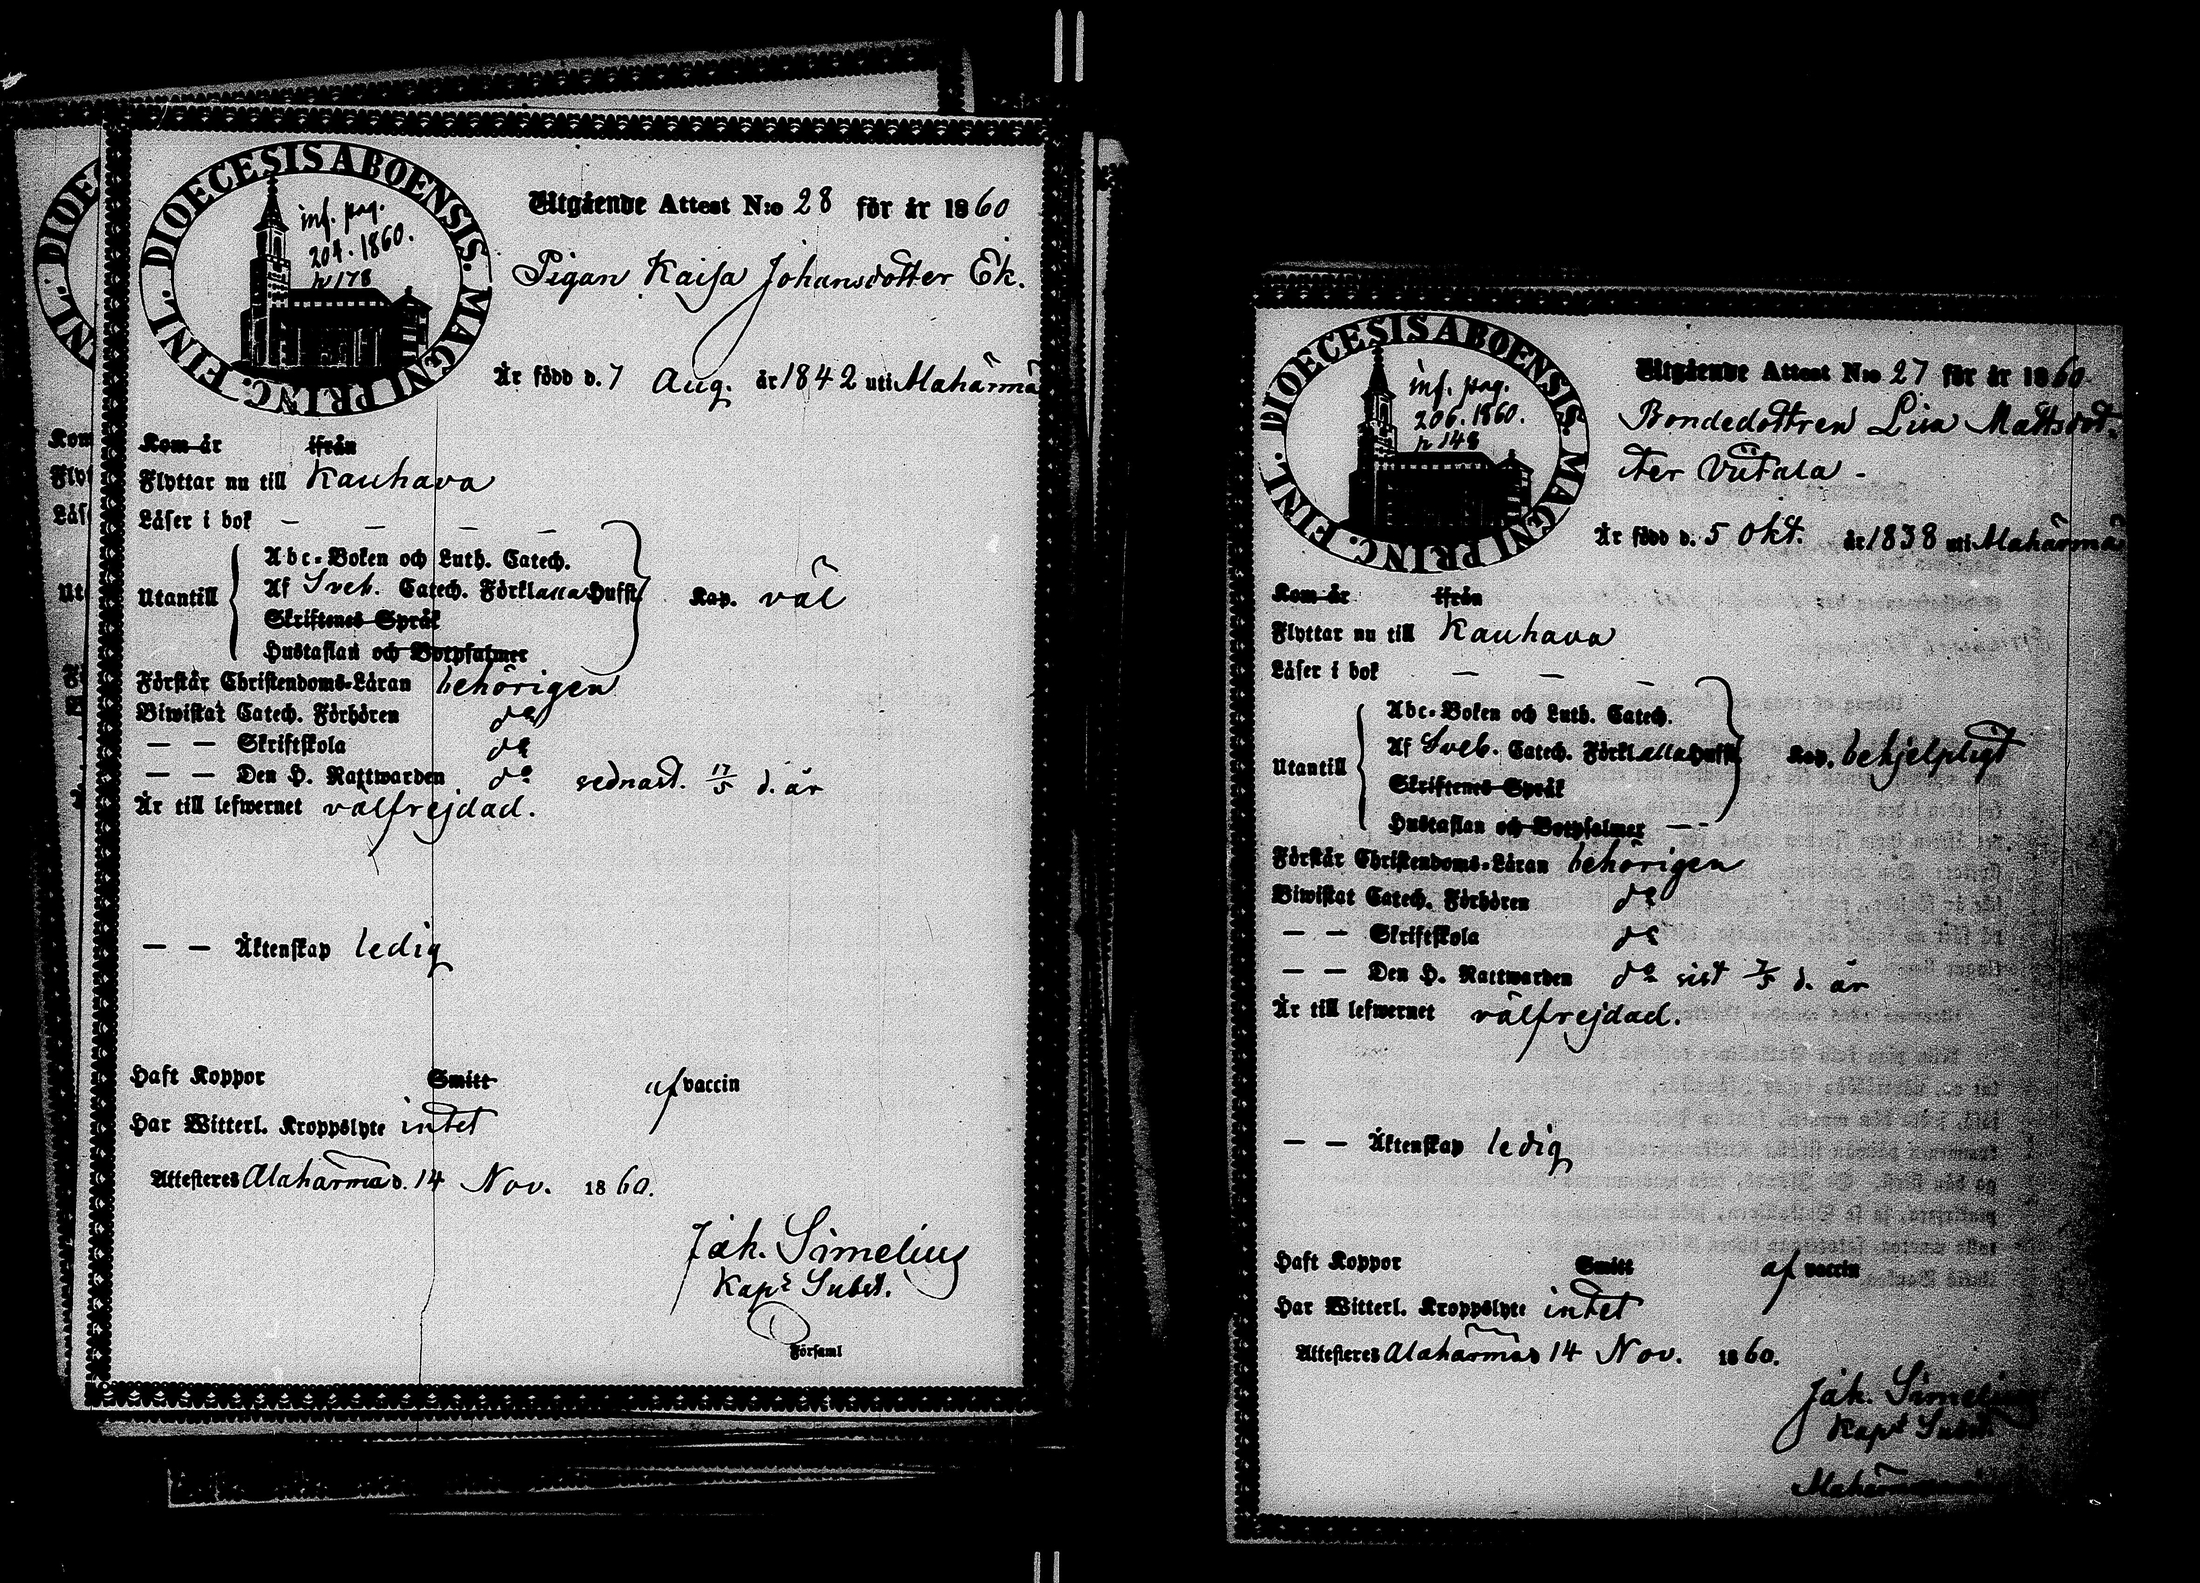 DIOECESIS ABOENSIS. MAGNI PRINC. FINL.
inf. pag.
204. 1860.
p 178
Utgående Attest N:o 28 för år 1860
Pigan Kaisa Johansdotter Ek.
Är född d. 7 Aug. år 1842 uti Alahärmä
Kom år ifrån
Flyttar nu till Kauhava
Läser i bok — — — —
Utantill
Abc-Boken och Luth. Catech.
Af Sveb. Catech. Förkl alla Hufst.
Skriftenes Språk
Hustaflan och Botpsalmer
Kap. väl
Förstår Christendoms-Läran behörigen
Biwistat Catech. Förhören do
— — Skriftskola do
— — Den H. Nattwarden do sednast. 17/5 d. år
Är till lefwernet välfrejdad.
— — Äktenskap ledig
Haft Koppor Smitt af vaccin
Har Witterl. Kroppslyte intet
Attesteres Alahärmä d. 14 Nov. 1860.
Jak. Simelius
Kaps Subst.
Församl
DIOECESIS ABOENSIS. MAGNI PRINC. FINL.
inf. pag.
206. 1860.
p 148
Utgående Attest N:o 27 för år 1860
Bondedottren Lisa Mattsdot-
ter Viitala -
Är född d. 5 Okt. år 1838 uti Alahärmä
Kom år ifrån
Flyttar nu till Kauhava
Läser i bok — — —
Utantill
Abc-Boken och Luth. Catech.
Af Sveb. Catech. Förkl alla Hufst.
Skriftenes Språk
Hustaflan och Botpsalmer — -
Kap. behjelpligt
Förstår Christendoms-Läran behörigen
Biwistat Catech. Förhören do
— — Skriftskola do
— — Den H. Nattwarden do sist 7/5 d. år
Är till lefwernet välfrejdad.
— — Äktenskap ledig
Haft Koppor Smitt af vaccin
Har Witterl. Kroppslyte intet
Attesteres Alahärmä d 14 Nov. 1860.
Jak. Simelius
Kaps Subst.